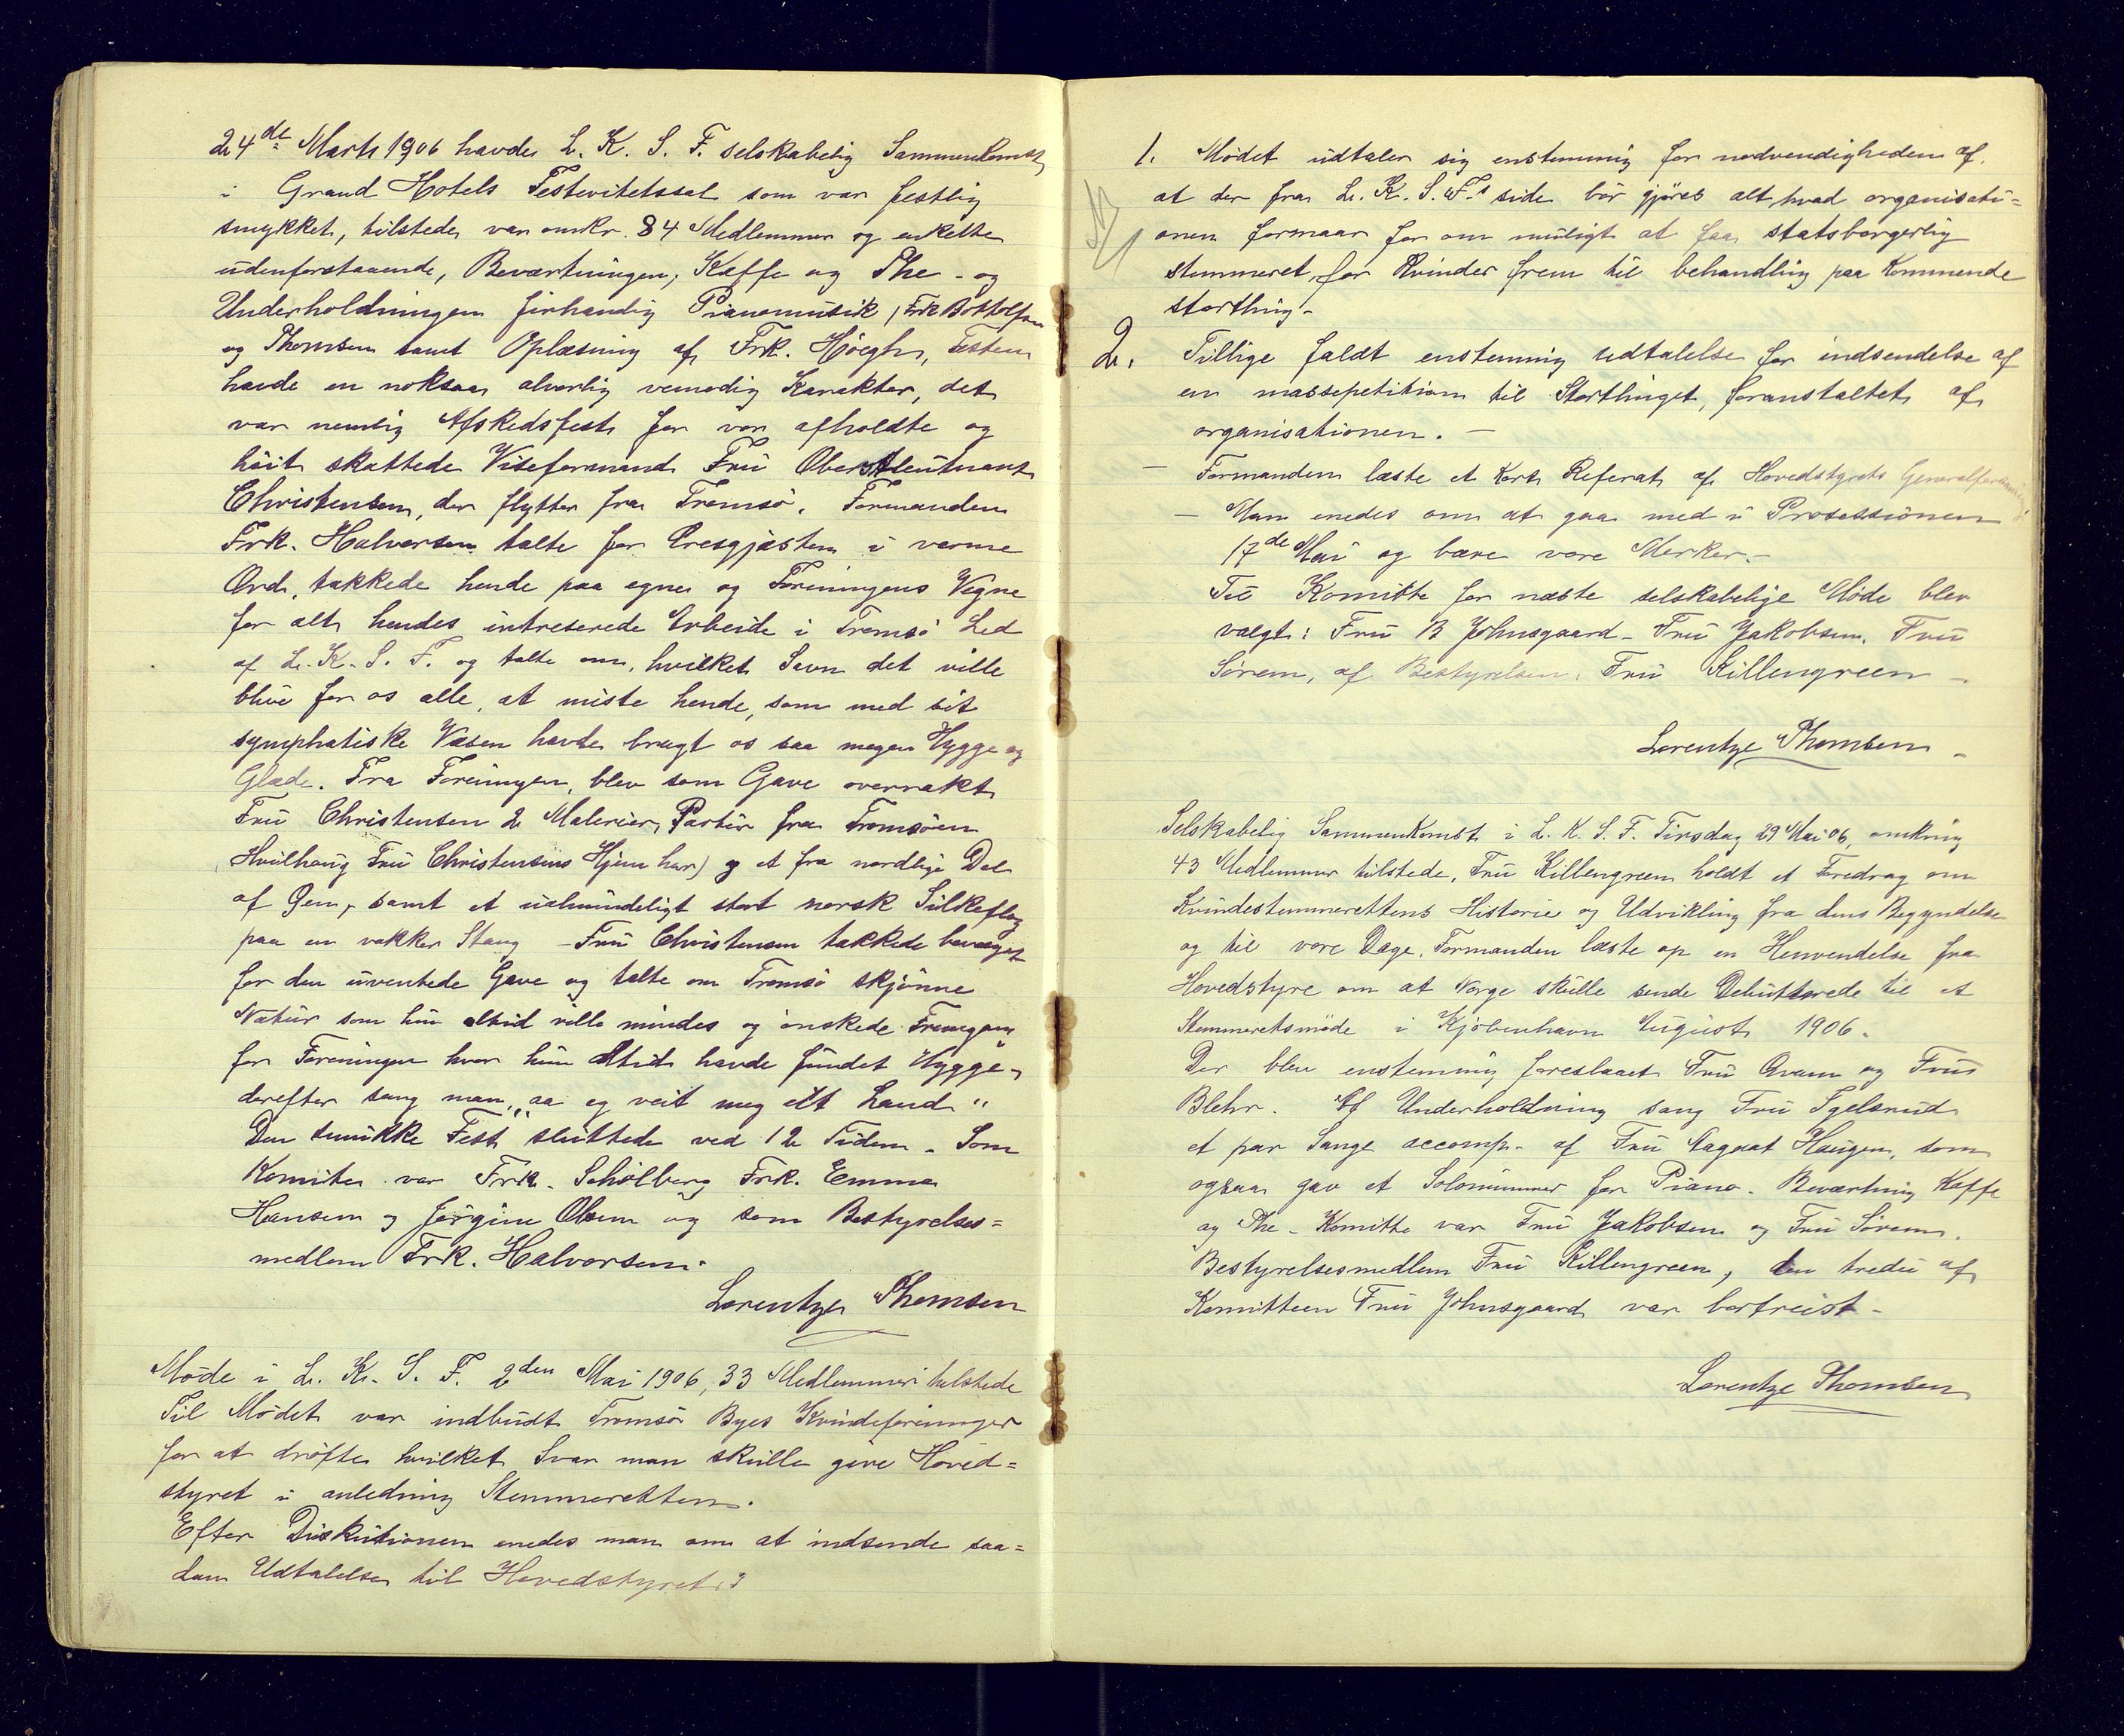 24de Marts 1906 havde L. K. S. F. selskabelig Sammenkomst
i Grand Hotels Festivitetssal som var festlig
smykket, tilstede var omkr. 84 Medlemmer og enkelte
udenforstaaende, Beværtningen, Kaffe og The - og
Underholdningen firhændig Pianomusik, Frk Bottolfsen
og Thomsen samt Oplæsning af Frk. Höegh, Festen
havde en noksaa alvorlig vemodig Karakter, det
var nemlig Afskedsfest for vor afholdte og
höit skattede Viseformand Fru Oberstleutnant
Christensen, der flytter fra Tromsö. Formanden
Frk. Halvorsen talte for Æresgjæsten i varme
Ord, takkede hende paa egne og Foreningens Vegne
for alt hendes intreserede Arbeide i Tromsö Led
af L. K. S. F. og talte om, hvilket Savn det ville
blive for os alle, at miste hende, som med sit
symphatiske Væsen havde bragt os saa megen Hygge og
Glæde. Fra Foreningen, blev som Gave overrakt
Fru Christensen 2 Malerier, Partier fra Tromsöen
(Hvilhaug Fru Christensens Hjem her) og et fra nordlige Del
af Öen, samt et ualmindeligt stort norsk Silkeflag
paa en vakker Stang - Fru Christensen takkede bevæget
for den uventede Gave og talte om Tromsö skjönne
Natur som hun altid ville mindes og önskede Fremgang
for Foreningen hvor hun altid havde fundet Hygge,
derefter sang man, "aa eg veit meg eit Land"
Den smukke Fest sluttede ved 12 Tiden. Som
Komite var Frk. Schölberg Frk. Emma
Hansen og Jörgine Olsen og som Bestyrelses=
medlem Frk. Halvorsen.
Lorentze Thomsen
Möde i L. K. S. F. 2den Mai 1906, 33 Medlemmer tilstede
Til Mödet var indbudt Tromsö Byes Kvindeforeninger
for at dröfte hvilket Svar man skulle give Hoved=
styret i anledning Stemmeretten.
Efter Diskutionen enedes man om at indsende saa=
dan Udtalelse til Hovedstyret:
1. Mödet udtaler sig enstemmig for nødvendigheden af.
at der fra L. K. S. F.s side bör gjöres alt hvad organisati=
onen formaar for om muligt at faa statsborgerlig
stemmeret for Kvinder frem til behandling paa Kommende
storthing -
2. Tillige faldt enstemmig udtalelse for indsendelse af
en massepetition til Storthinget, foranstaltet af
organisationen. -
- Formanden læste et Kort Referat af Hovedstyrets Generalforsamling
- Man enedes om at gaa med i Prosessionen
17de Mai og bære vore Merker. -
Til Komitte for næste selskabelige Möde blev
valgt: Fru B Johnsgaard - Fru Jakobsen. Fru
Sörem, af Bestyrelsen: Fru Killengreen -
Lorentze Thomsen -
Selskabelig Sammenkomst i L. K. S. F. Tirsdag 29 Mai 06, omkring
43 Medlemmer tilstede, Fru Killengreen holdt et Foredrag om
Kvindestemmerettens Historie og Udvikling fra dens Begyndelse
og til vore Dage. Formanden læste op en Henvendelse fra
Hovedstyre om at Norge skulle sende Debutterede til et
Stemmeretsmöde i Kjöbenhavn August 1906.
Der blev enstemmig foreslaaet Fru Qvam og Fru
Blehr. Af Underholdning sang Fru Igelsrud
et par Sange accomp. af Fru Aagaat Haugen, som
ogsaa gav et Solonummer for Piano. Beværtning Kaffe
og The - Komitte var Fru Jakobsen og Fru Sörem.
Bestyrelsesmedlem Fru Killengreen, den tredie af
Komitteen Fru Johnsgaard var bortreist -
Lorentze Thomsen